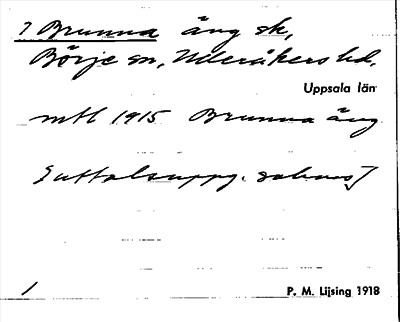 ? Brunna äng sk,
Börje sn, Ulleråkers hd.
Uppsala län
mtl 1915 Brunna äng
[Uttalsuppg. saknas]
1
P. M. Lijsing 1918